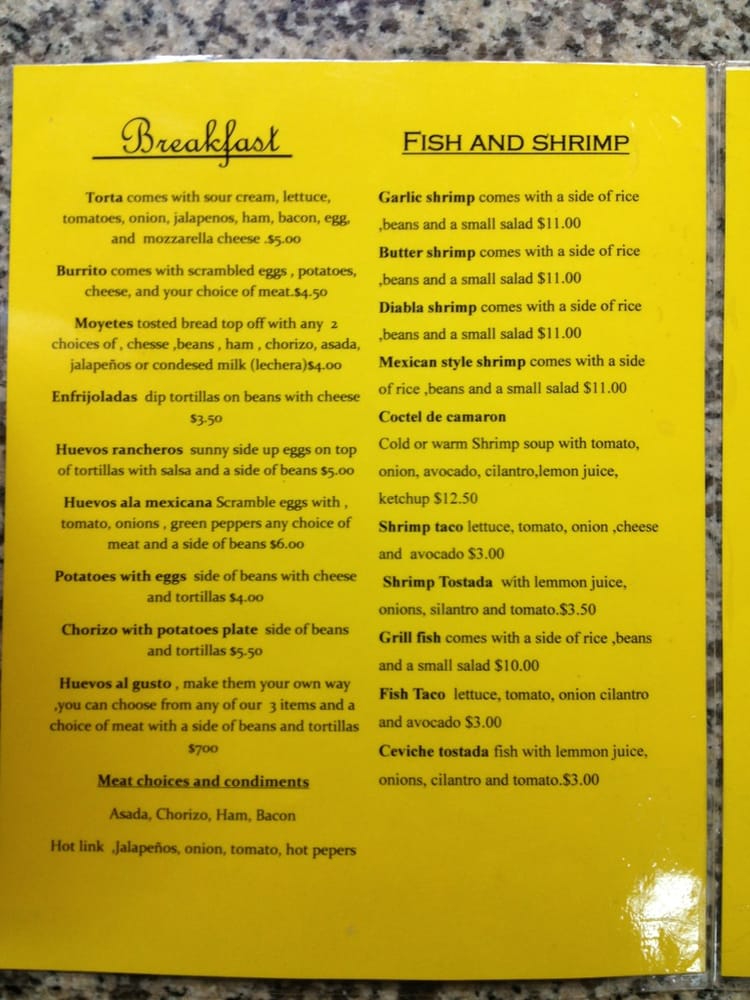 Breakfast
Torta comes with sour cream, lettuce,
tomatoes, onion, jalapenos, ham, bacon, egg,
and mozzarella cheese .$5.00
Burrito comes with scrambled eggs , potatoes,
cheese, and your choice of meat.$4.50
Moyetes tosted bread top off with any 2
choices of , chesse ,beans , ham , chorizo, asada,
jalapeños or condesed milk (lechera)$4.00
Enfrijoladas dip tortillas on beans with cheese
$3.50
Huevos rancheros sunny side up eggs on top
of tortillas with salsa and a side of beans $5.00
Huevos ala mexicana Scramble eggs with ,
tomato, onions , green peppers any choice of
meat and a side of beans $6.00
Potatoes with eggs side of beans with cheese
and tortillas $4.00
Chorizo with potatoes plate side of beans
and tortillas $5.50
Huevos al gusto , make them your own way
,you can choose from any of our 3 items and a
choice of meat with a side of beans and tortillas
$700
Meat choices and condiments
Asada, Chorizo, Ham, Bacon
Hot link ,Jalapeños, onion, tomato, hot pepers
FISH AND SHRIMP
Garlic shrimp comes with a side of rice
,beans and a small salad $11.00
Butter shrimp comes with a side of rice
,beans and a small salad $11.00
Diabla shrimp comes with a side of rice
,beans and a small salad $11.00
Mexican style shrimp comes with a side
of rice ,beans and a small salad $11.00
Coctel de camaron
Cold or warm Shrimp soup with tomato,
onion, avocado, cilantro,lemon juice,
ketchup $12.50
Shrimp taco lettuce, tomato, onion ,cheese
and avocado $3.00
Shrimp Tostada with lemmon juice,
onions, silantro and tomato.$3.50
Grill fish comes with a side of rice ,beans
and a small salad $10.00
Fish Taco lettuce, tomato, onion cilantro
and avocado $3.00
Ceviche tostada fish with lemmon juice,
onions, cilantro and tomato.$3.00